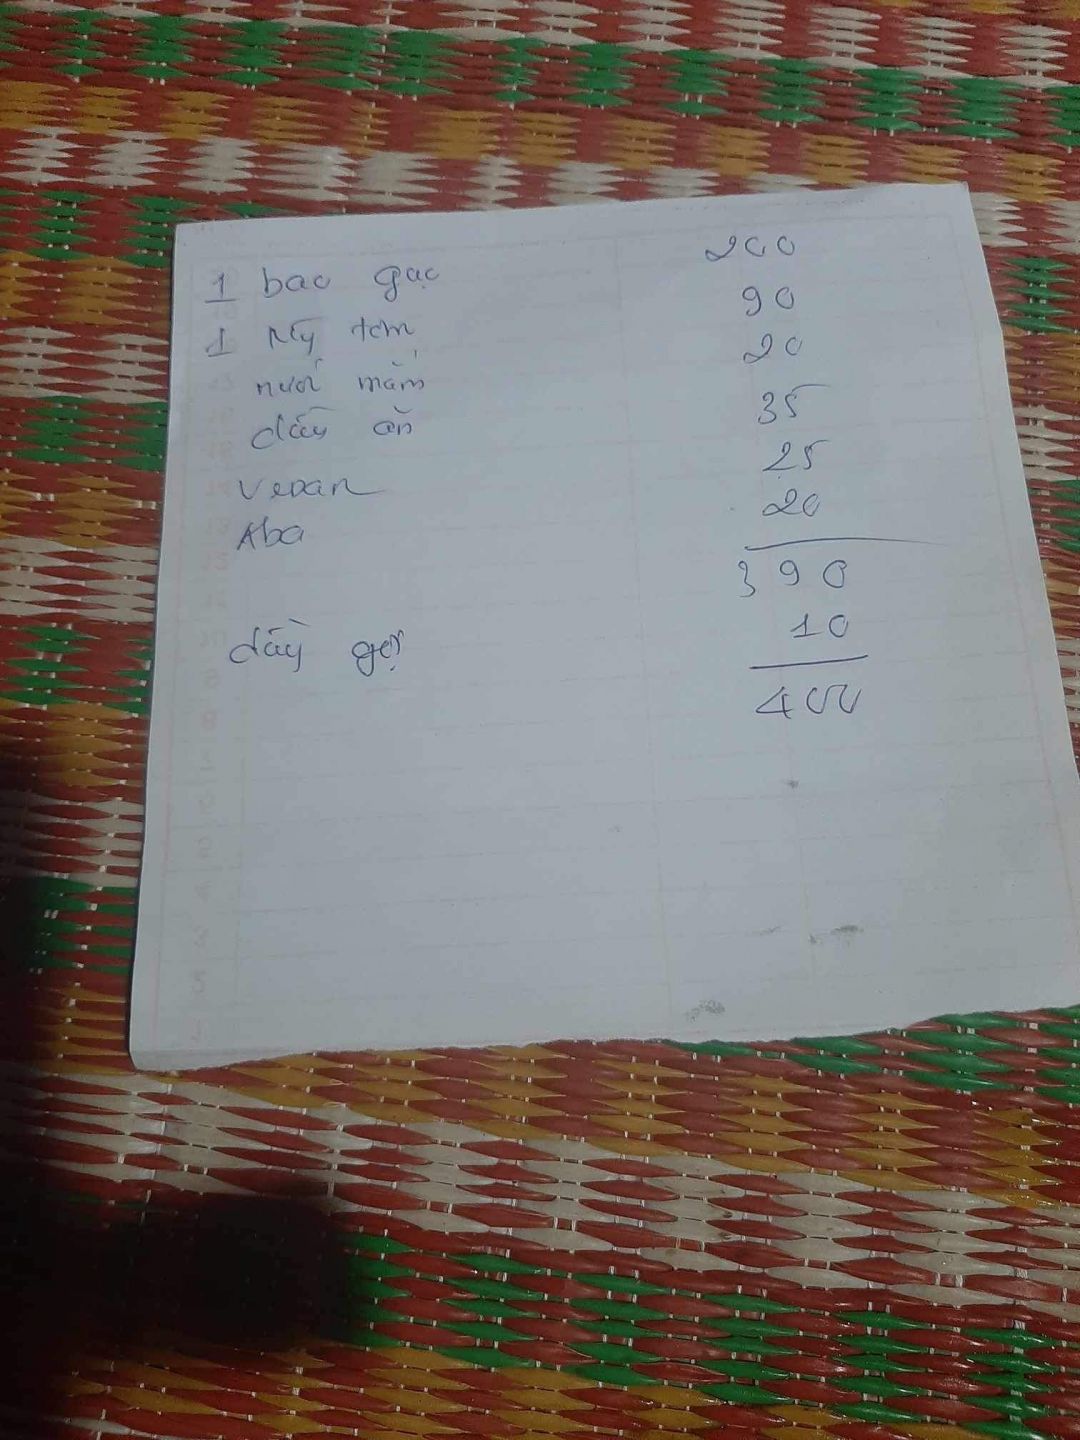 1 bao gạo 200
1 Mỳ tôm 90
nước mắm 20
dầu ăn 35
Vedan 25
Aba 20
390
dầu gội 10
400